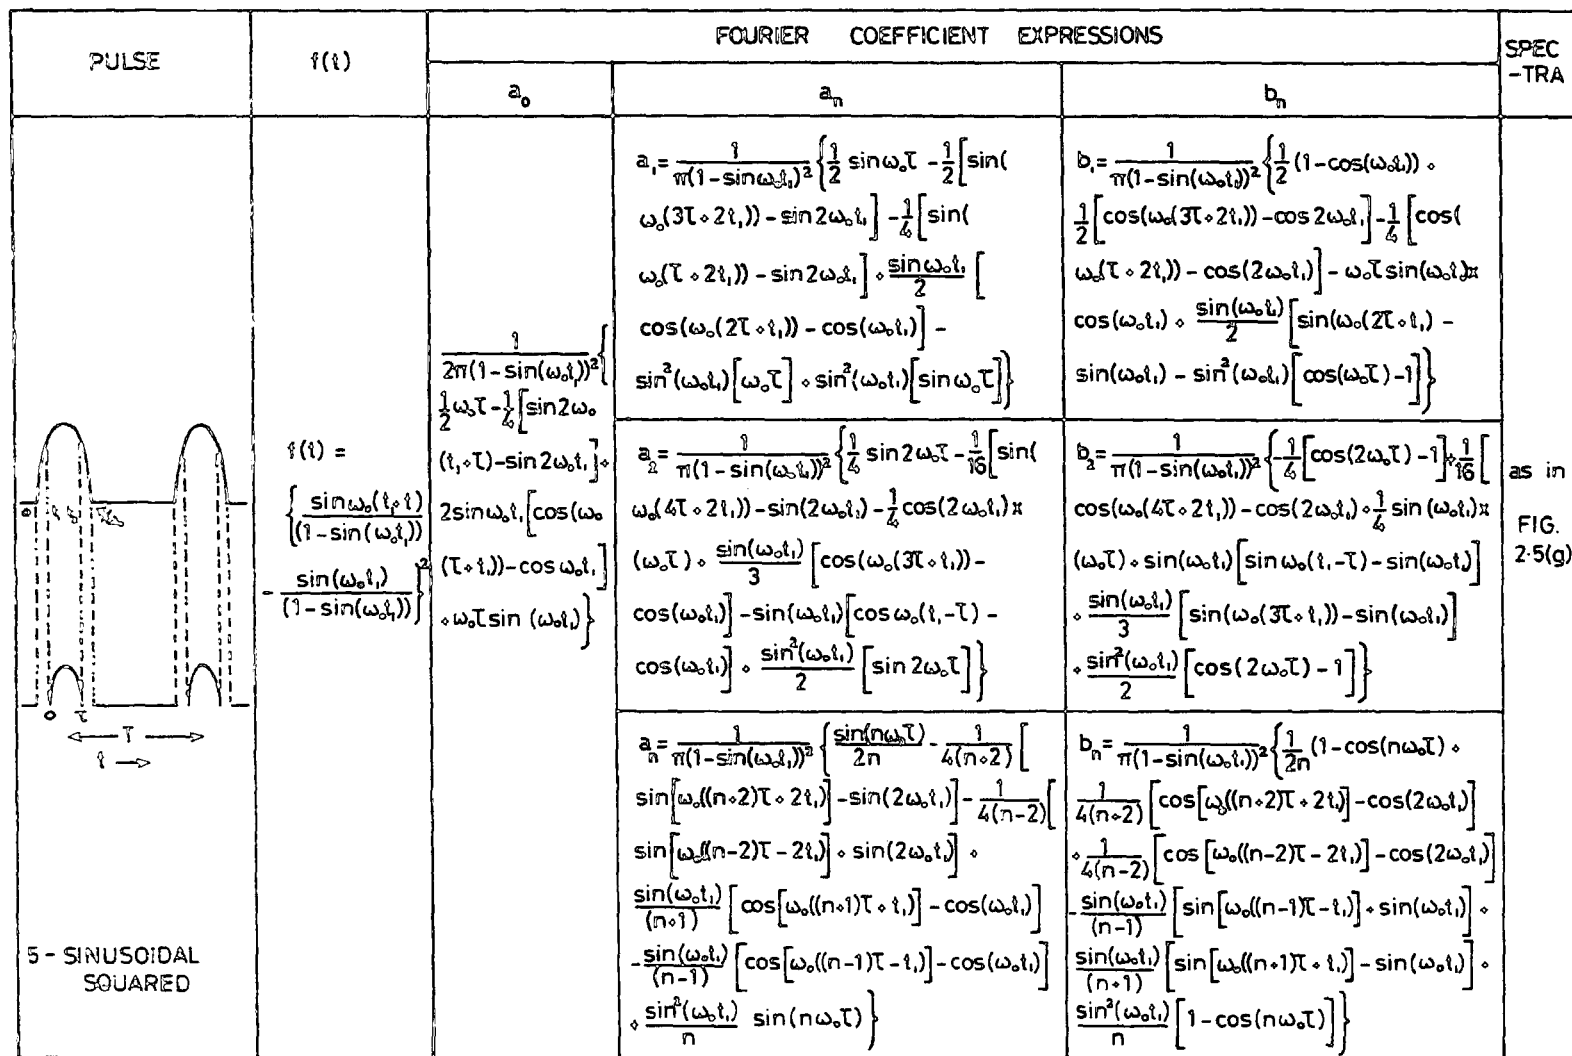 PULSE
f(t)
FOURIER COEFFICIENT EXPRESSIONS
SPEC
-TRA
a₀
aₙ
bₙ
f(t) =
{ sinω₀(t₁+t) / (1-sin(ω₀t₁))
- sin(ω₀t₁) / (1-sin(ω₀t₁)) }²
1 / 2π(1-sin(ω₀t₁))² {
1/2 ω₀τ - 1/4 [sin2ω₀
(t₁+τ)-sin2ω₀t₁]+
2sinω₀t₁[cos(ω₀
(τ+t₁))-cosω₀t₁]
+ω₀τsin (ω₀t₁)}
a₁= 1 / π(1-sinω₀t₁)² {1/2 sinω₀τ - 1/2 [sin(
ω₀(3τ+2t₁))-sin2ω₀t₁] - 1/4 [sin(
ω₀(τ+2t₁))-sin2ω₀t₁] + sinω₀t₁ / 2 [
cos(ω₀(2τ+t₁))-cos(ω₀t₁)] -
sin²(ω₀t₁)[ω₀τ]+sin²(ω₀t₁)[sinω₀τ]}
b₁= 1 / π(1-sin(ω₀t₁))² {1/2 (1-cos(ω₀t₁)) +
1/2 [cos(ω₀(3τ+2t₁))-cos2ω₀t₁] - 1/4 [cos(
ω₀(τ+2t₁))-cos(2ω₀t₁)]-ω₀τsin(ω₀t₁)x
cos(ω₀t₁) + sin(ω₀t₁) / 2 [sin(ω₀(2τ+t₁)-
sin(ω₀t₁)-sin²(ω₀t₁)[cos(ω₀τ)-1]}
a₂= 1 / π(1-sin(ω₀t₁))² {1/4 sin2ω₀τ - 1/16 [sin(
ω₀(4τ+2t₁))-sin(2ω₀t₁) - 1/4 cos(2ω₀t₁)x
(ω₀τ) + sin(ω₀t₁) / 3 [cos(ω₀(3τ+t₁))-
cos(ω₀t₁)]-sin(ω₀t₁)[cosω₀(t₁-τ)-
cos(ω₀t₁)] + sin²(ω₀t₁) / 2 [sin2ω₀τ]}
b₂= 1 / π(1-sin(ω₀t₁))² {-1/4 [cos(2ω₀τ)-1] + 1/16 [
cos(ω₀(4τ+2t₁))-cos(2ω₀t₁) + 1/4 sin(ω₀t₁)x
(ω₀τ)+sin(ω₀t₁)[sinω₀(t₁-τ)-sin(ω₀t₁)]
+ sin(ω₀t₁) / 3 [sin(ω₀(3τ+t₁))-sin(ω₀t₁)]
+ sin²(ω₀t₁) / 2 [cos(2ω₀τ)-1]}
as in
FIG.
2·5(g)
0 τ
T
t
aₙ= 1 / π(1-sin(ω₀t₁))² { sin(nω₀τ) / 2n - 1 / 4(n+2) [
sin[ω₀((n+2)τ+2t₁)]-sin(2ω₀t₁)] - 1 / 4(n-2) [
sin[ω₀((n-2)τ-2t₁)]+sin(2ω₀t₁)] +
sin(ω₀t₁) / (n+1) [cos[ω₀((n+1)τ+t₁)]-cos(ω₀t₁)]
- sin(ω₀t₁) / (n-1) [cos[ω₀((n-1)τ-t₁)]-cos(ω₀t₁)]
+ sin²(ω₀t₁) / n sin(nω₀τ)}
bₙ= 1 / π(1-sin(ω₀t₁))² {1/2n (1-cos(nω₀τ) +
1 / 4(n+2) [cos[ω₀((n+2)τ+2t₁)]-cos(2ω₀t₁)]
+ 1 / 4(n-2) [cos[ω₀((n-2)τ-2t₁)]-cos(2ω₀t₁)]
- sin(ω₀t₁) / (n-1) [sin[ω₀((n-1)τ-t₁)]+sin(ω₀t₁)] +
sin(ω₀t₁) / (n+1) [sin[ω₀((n+1)τ+t₁)]-sin(ω₀t₁)] +
sin²(ω₀t₁) / n [1-cos(nω₀τ)]}
5 - SINUSOIDAL
SQUARED